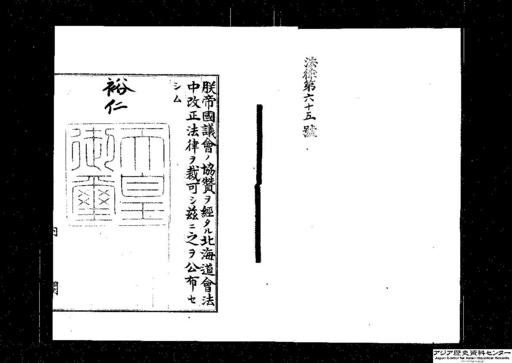 法律第六十五號
朕帝國議會ノ協贊ヲ經タル北海道會法
中改正法律ヲ裁可シ茲ニ之ヲ公布セ
シム
裕仁
天皇御璽
内 閣
アジア歴史資料センター
Japan Center for Asian Historical Records